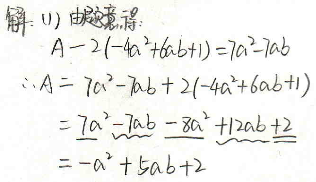 解: (1) 由题意得:
A-2(-4a²+6ab+1)=7a²-7ab
∴A= 7a²-7ab+2(-4a²+6ab+1)
=7a²-7ab-8a²+12ab+2
=-a²+5ab+2